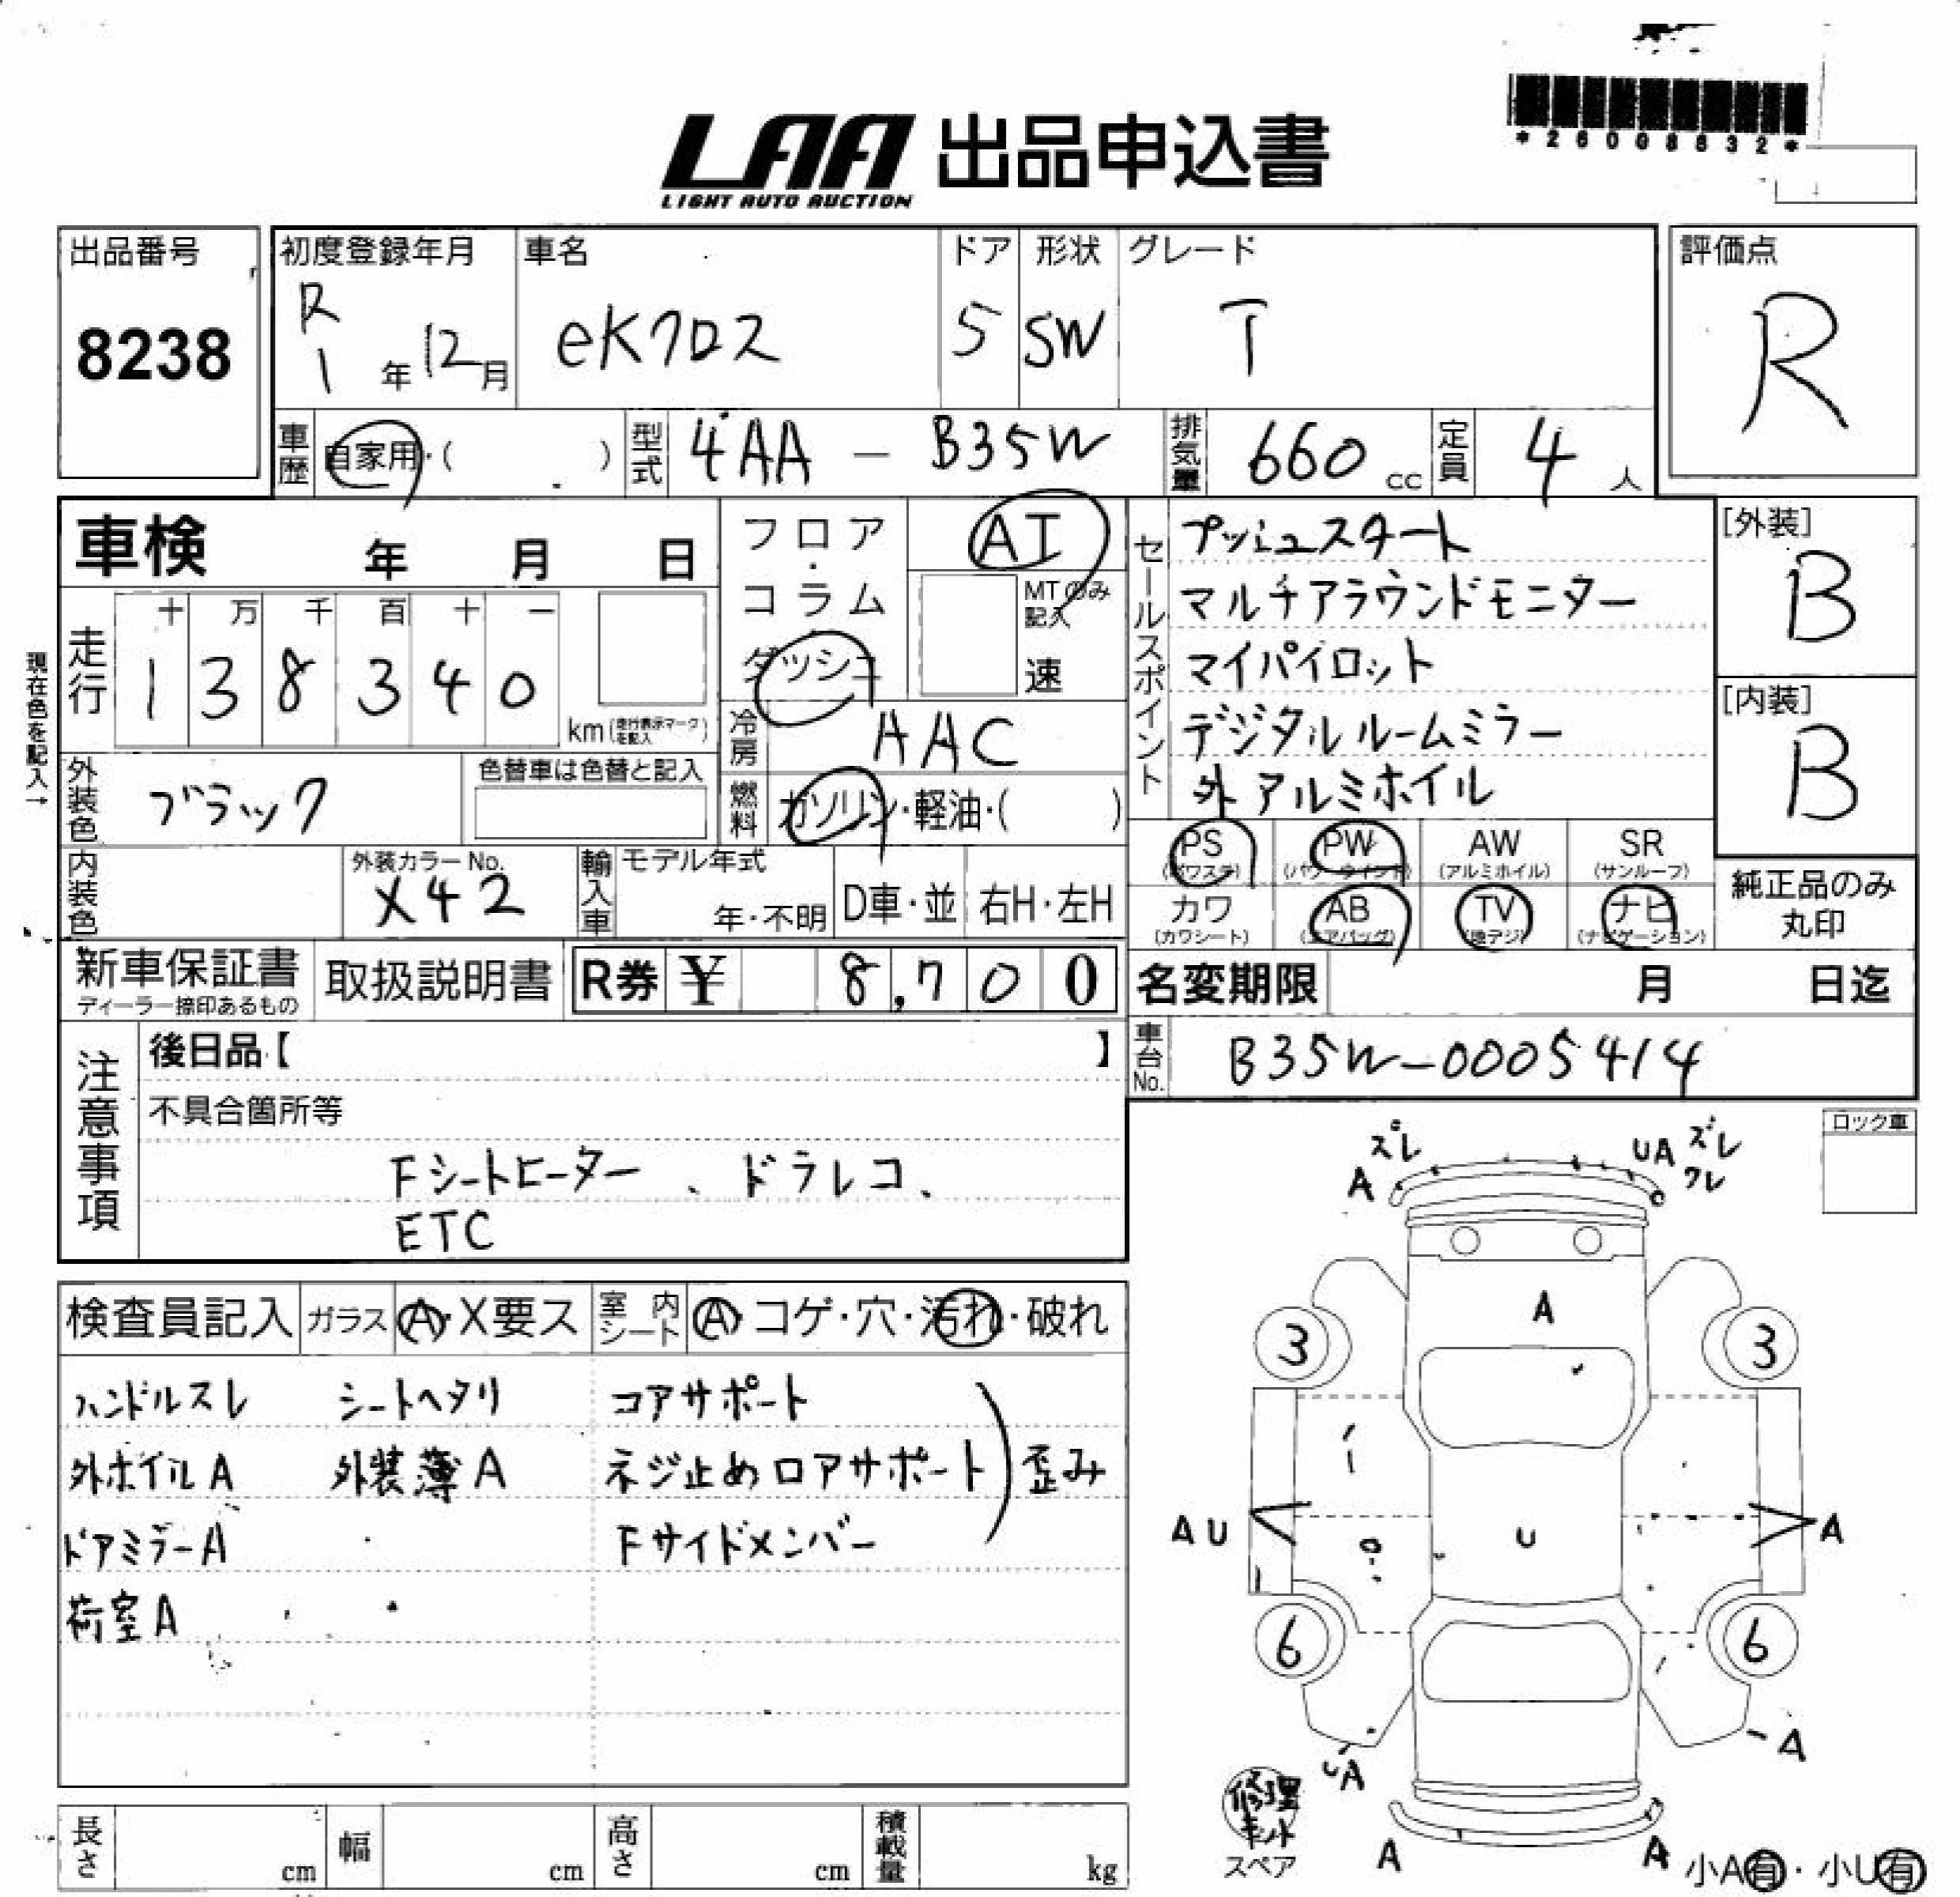 *26008832*
LAA 出品申込書
LIGHT AUTO AUCTION
出品番号
8238
初度登録年月
R
1 年 12 月
車名
eKクロス
ドア
5
形状
SW
グレード
T
評価点
R
車歴
自家用・( )
型式
4AA - B35W
排気量
660 cc
定員
4 人
車検 年 月 日
現在色を記入→
走行
十 万 千 百 十 一
1 3 8 3 4 0
km (走行表示マークを記入)
フロア・コラム・ダッシュ
AT
MTのみ記入
速
冷房
AAC
燃料
ガソリン・軽油・( )
外装色
ブラック
色替車は色替と記入
内装色
外装カラーNo.
X42
輸入車
モデル年式
年・不明
D車・並
右H・左H
セールスポイント
プッシュスタート
マルチアラウンドモニター
マイパイロット
デジタルルームミラー
外アルミホイル
[外装]
B
[内装]
B
PS
(パワステ)
PW
(パワーウインド)
AW
(アルミホイル)
SR
(サンルーフ)
カワ
(カワシート)
AB
(エアバッグ)
TV
(地デジ)
ナビ
(ナビゲーション)
純正品のみ
丸印
新車保証書
ディーラー捺印あるもの
取扱説明書
R券 ¥ 8,700
名変期限 月 日迄
車台No.
B35W-0005414
注意事項
後日品【 】
不具合箇所等
Fシートヒーター、ドラレコ、
ETC
検査員記入
ガラス
A・X要ス
室内シート
A・コゲ・穴・汚れ・破れ
ハンドルスレ シートヘタリ
外ホイルA 外装薄A
ドアミラーA
荷室A
コアサポート
ネジ止めロアサポート
Fサイドメンバー
歪み
長さ cm
幅 cm
高さ cm
積載量 kg
ロック車
ズレ
A
UA ズレ
ワレ
A
3
3
AU
U
A
6
6
A
UA
修理
キット
スペア
A
A
小A有・小U有